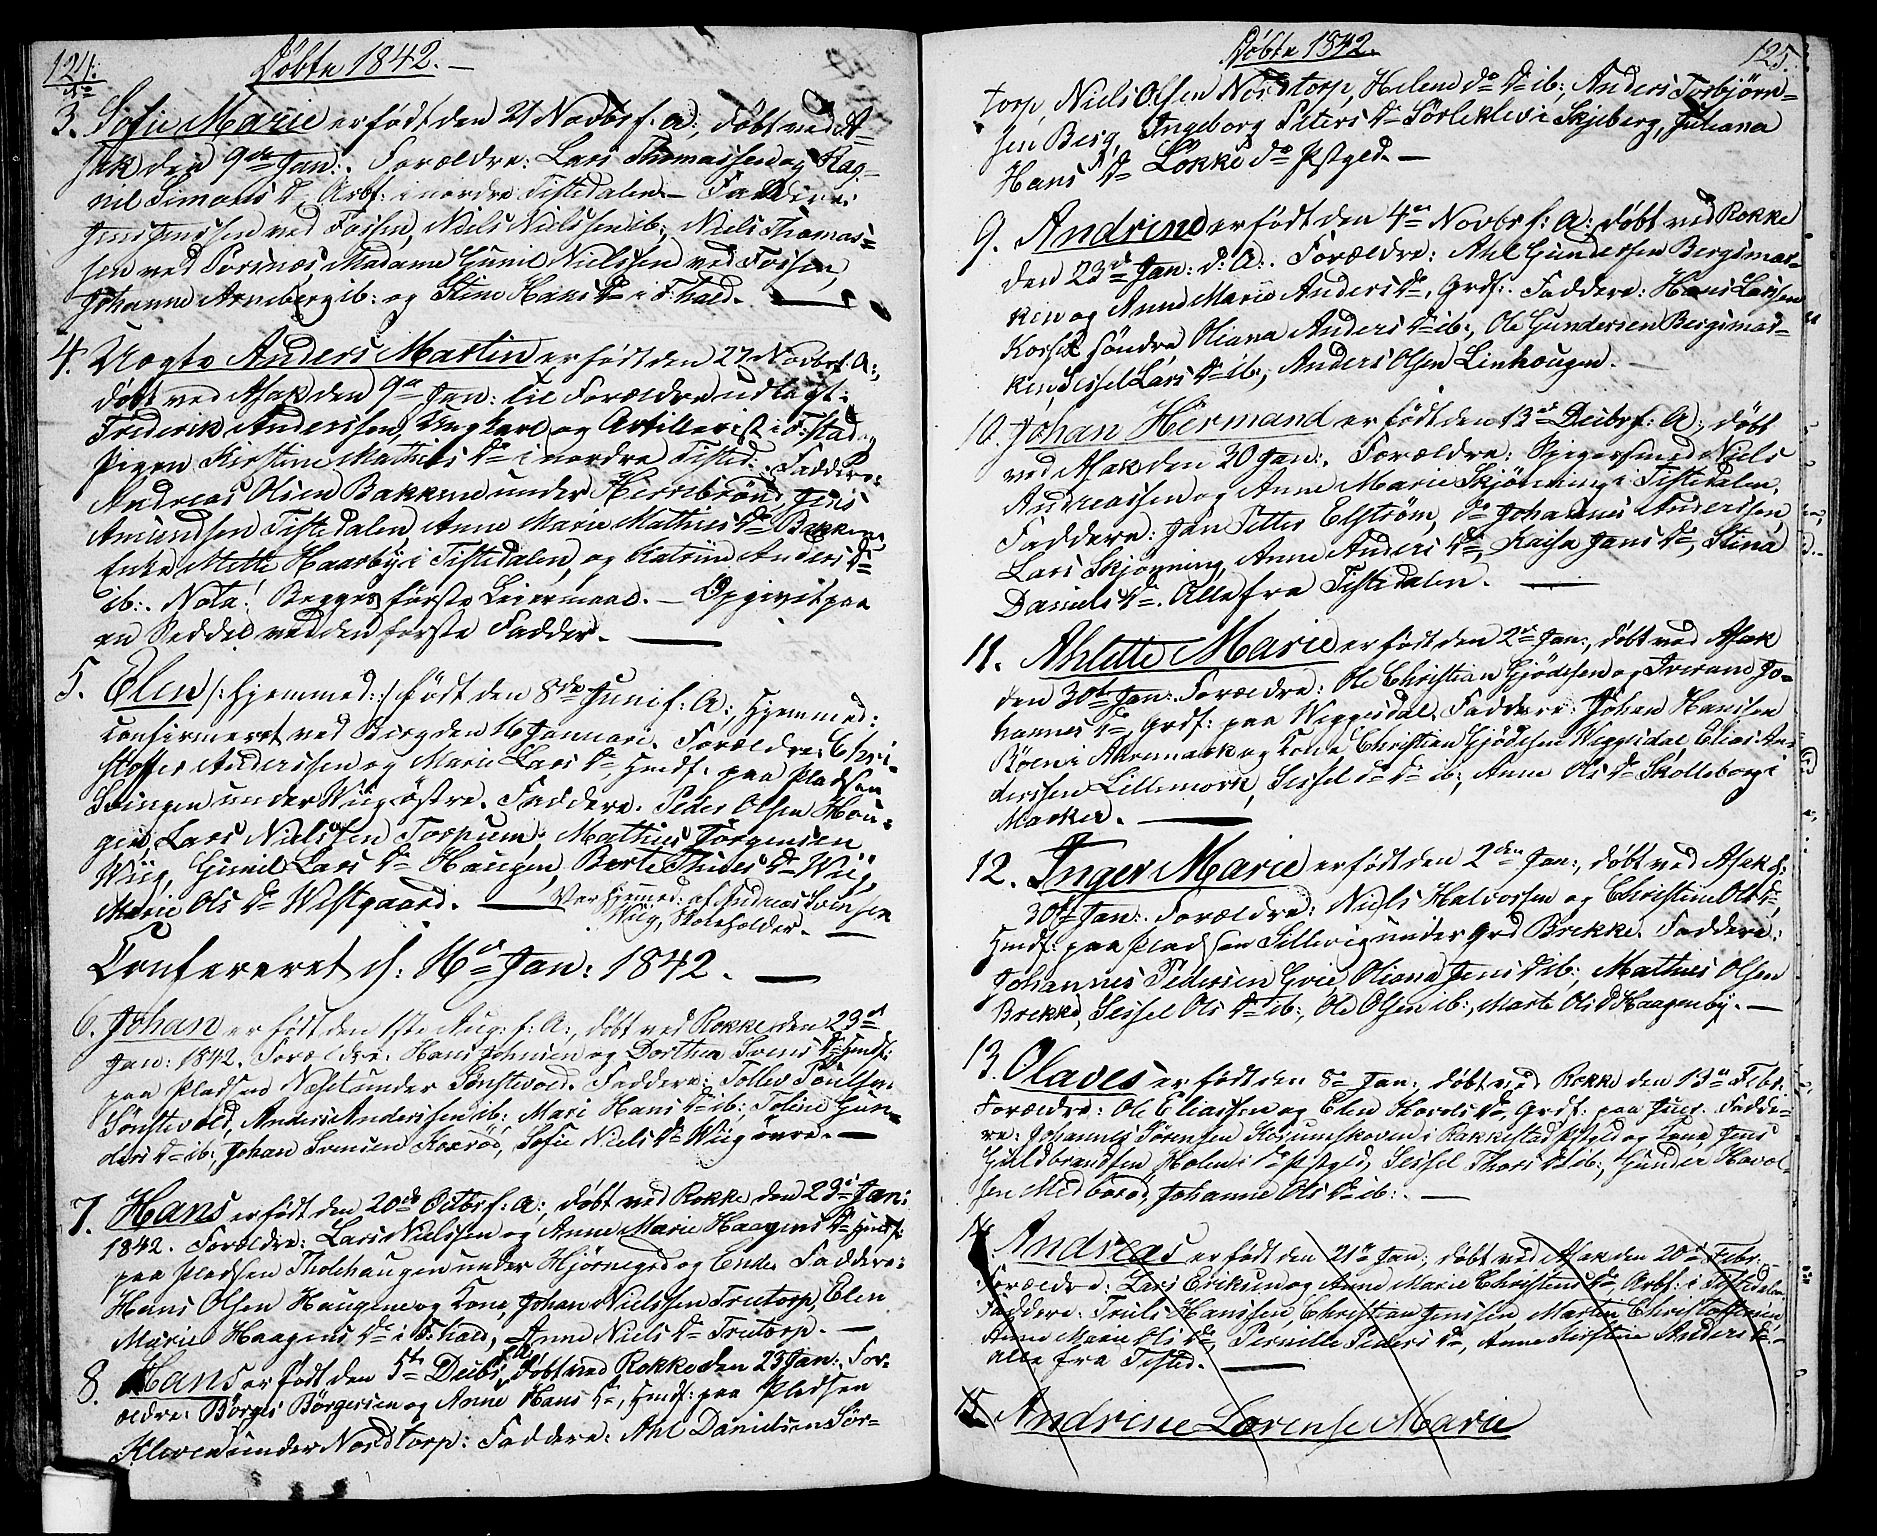 124.
Döbte 1842. —
No
3. Sofie Marie er födt den 21 Novbr f. a., döbt ved A-
sak den 9de Jan:. Forældre: Lars Thomassen og Rag-
nil Simons Dr, Arbf: i nordre Tistedalen. — Faddere:
Jens Jenssen ved Fossen, Niels Nielssen ib:, Niels Thomas-
sen ved Porsnæs, Madame Gunil Nielssen ved Fossen,
Johanne Arneberg ib: og Stine Hans Dr i F:hald. —
4. Uægte Anders Martin er födt den 27 Novbr f. A:,
döbt ved Asak den 9de Jan: til Forældre udlagt:
Frederik Anderssen, Ungkarl og Artillerist i F:stad og
Pigen Kirstine Mathis Dr i nordre Tisted. Faddere:
Andreas Olsen Bakkene under Herrebröd, Jens
Amundsen Tistedalen, Anne Marie Mathies Dr Bakkene,
Enke Mette Haarbye i Tistedalen, og Katrine Anders Dr
ib:. Nota! Begges förste Leiermaal. — Opgivet paa
en Seddel ved den förste Fadder. —
5. Elen /: hjemmed: / födt den 8de Juni f: A:, hjemmed:
confirmeret ved Berg den 16 Januari. Forældre: Chri-
stoffer Anderssen og Marie Lars Dr, Hmdf: paa Pladsen
Svingen under Wiig östre. Faddere: Peder Olsen Hou-
gen, Lars Nielssen Torpum, Mathies Jörgensen
Wiig, Gunil Lars Dr Haugen, Berte Thues Dr Wiig,
Marie Ols Dr Westgaard. — Var hjemmed: af Andreas Svensen
Wiig, Skoleholder. —
Confereret d: 16de Jan: 1842. —
6. Johan er födt den 1ste Aug: f: A:, döbt ved Rokke den 23de
Jan: 1842. Forældre: Hans Johnsen og Dorthea Svens Dr Hmdf:
paa Pladsen Næset under Sönstevold. Faddere: Tollev Poulsen
Sönstevold, Anders Anderssen ib:, Mari Hans Dr ib:, Toline Gun-
ders Dr ib:, Johan Svensen Kaxröd, Sofie Niels Dr Wiig övre. —
7. Hans er födt den 20de Octbr f: A:, döbt ved Rokke den 23de Jan:
1842. Forældre: Lars Nielssen og Anne Marie Haagens Dr Hmdf:
paa Pladsen Tholehaugen under Hjörnegrd og Ende. Faddere:
Hans Olsen Haugene og Kone, Johan Nielssen Trutorp, Elen
Marie Haagens Dr i F:hald, Anne Niels Dr Trutorp. —
8. Hans er födt den 5te Decbr f. A., döbt ved Rokke den 23 Jan:. For-
ældre: Börger Börgersen og Anne Hans Dr, Hmdf: paa Pladsen
Kleven under Nordtorp: Faddere: Ahl Danielsen Sör-
125.
Döbte 1842.
torp, Niels Olsen Nordtorp, Helene do Dr ib:, Anders Torbjörn-
sen Berg, Ingeborg Peters Dr Sörleklev i Skjeberg, Juliana
Hans Dr Lökke do Pstgld. —
9. Andrine er födt den 4de Novbr f: A: döbt ved Rokke
den 23de Jan: d: A:. Forældre: Ahl Gundersen Bergsmar-
ken og Anne Marie Anders Dr, Grdf:. Faddere: Hans Larssen
Korset söndre, Oliana Anders Dr ib:, Ole Gundersen Bergsmar-
ken, Sissel Lars Dr ib:, Anders Olsen Linhougen. —
10. Johan Hermand er födt den 13de Decbr f: A:, döbt
ved Asak den 30 Jan:. Forældre: Spigersmed Niels
Andreassen og Anne Marie Skjönning i Tistedalen.
Faddere: Jan Petter Elström, do Johannes Anderssen,
Lars Skjönning, Anne Anders Dr, Kaisa Jans Dr, Stina
Daniels Dr. Alle fra Tistedalen. —
11. Ahlette Marie er födt den 2de Jan:, döbt ved Asak
den 30te Jan:. Forældre: Ole Christian Gjödesen og Iverane Jo-
hannes Dr, Grdf: paa Weggesdal. Faddere: Johan Hanssen
Böen i Aremark og Kone, Christian Gjödesen Weggesdal, Elias An-
derssen Lillemork, Sissel do Dr ib:, Anne Ols Dr Skolleborg i
Marker. —
12. Inger Marie er födt den 2den Jan:, döbt ved Asak d:
30te Jan:. Forældre: Niels Halvorssen og Christine Ols Dr,
Hmdf: paa Pladsen Sillevig under Grd Brekke. Faddere:
Johannes Pedersen Grie, Oliana Jens Dr ib:, Mathies Olsen
Brekke, Sissel Ols Dr ib:, Ole Olsen ib:, Marte Ols D Haagenby. —
13. Olaves er födt den 8de Jan:, döbt ved Rokke den 13de Febr.
Forældre: Ole Eliassen og Elen Haralds Dr, Grdf: paa Juer. Fadde-
re: Johannes Sörensen Kosumskoven i Rakkestad Pstgld og Kone, Jens
Guldbrandsen Holen i do Pstgld, Sissel Thors Dr ib:, Gunder Havol-
sen Medboröd, Johanne Ols Dr ib:. —
14. Andreas er födt den 21de Jan:, döbt ved Asak den 20de Febr.
Forældre: Lars Eriksen og Anne Marie Christens Dr, Arbf: i Tistedalen.
Faddere: Truls Hanssen, Christian Jenssen, Martin Christoffersen,
Anne Marie Ols Dr, Pernille Peders Dr, Anne Kirstine Anders Dr. —
alle fra Tisted. —
15. Andrine Lorense Marie